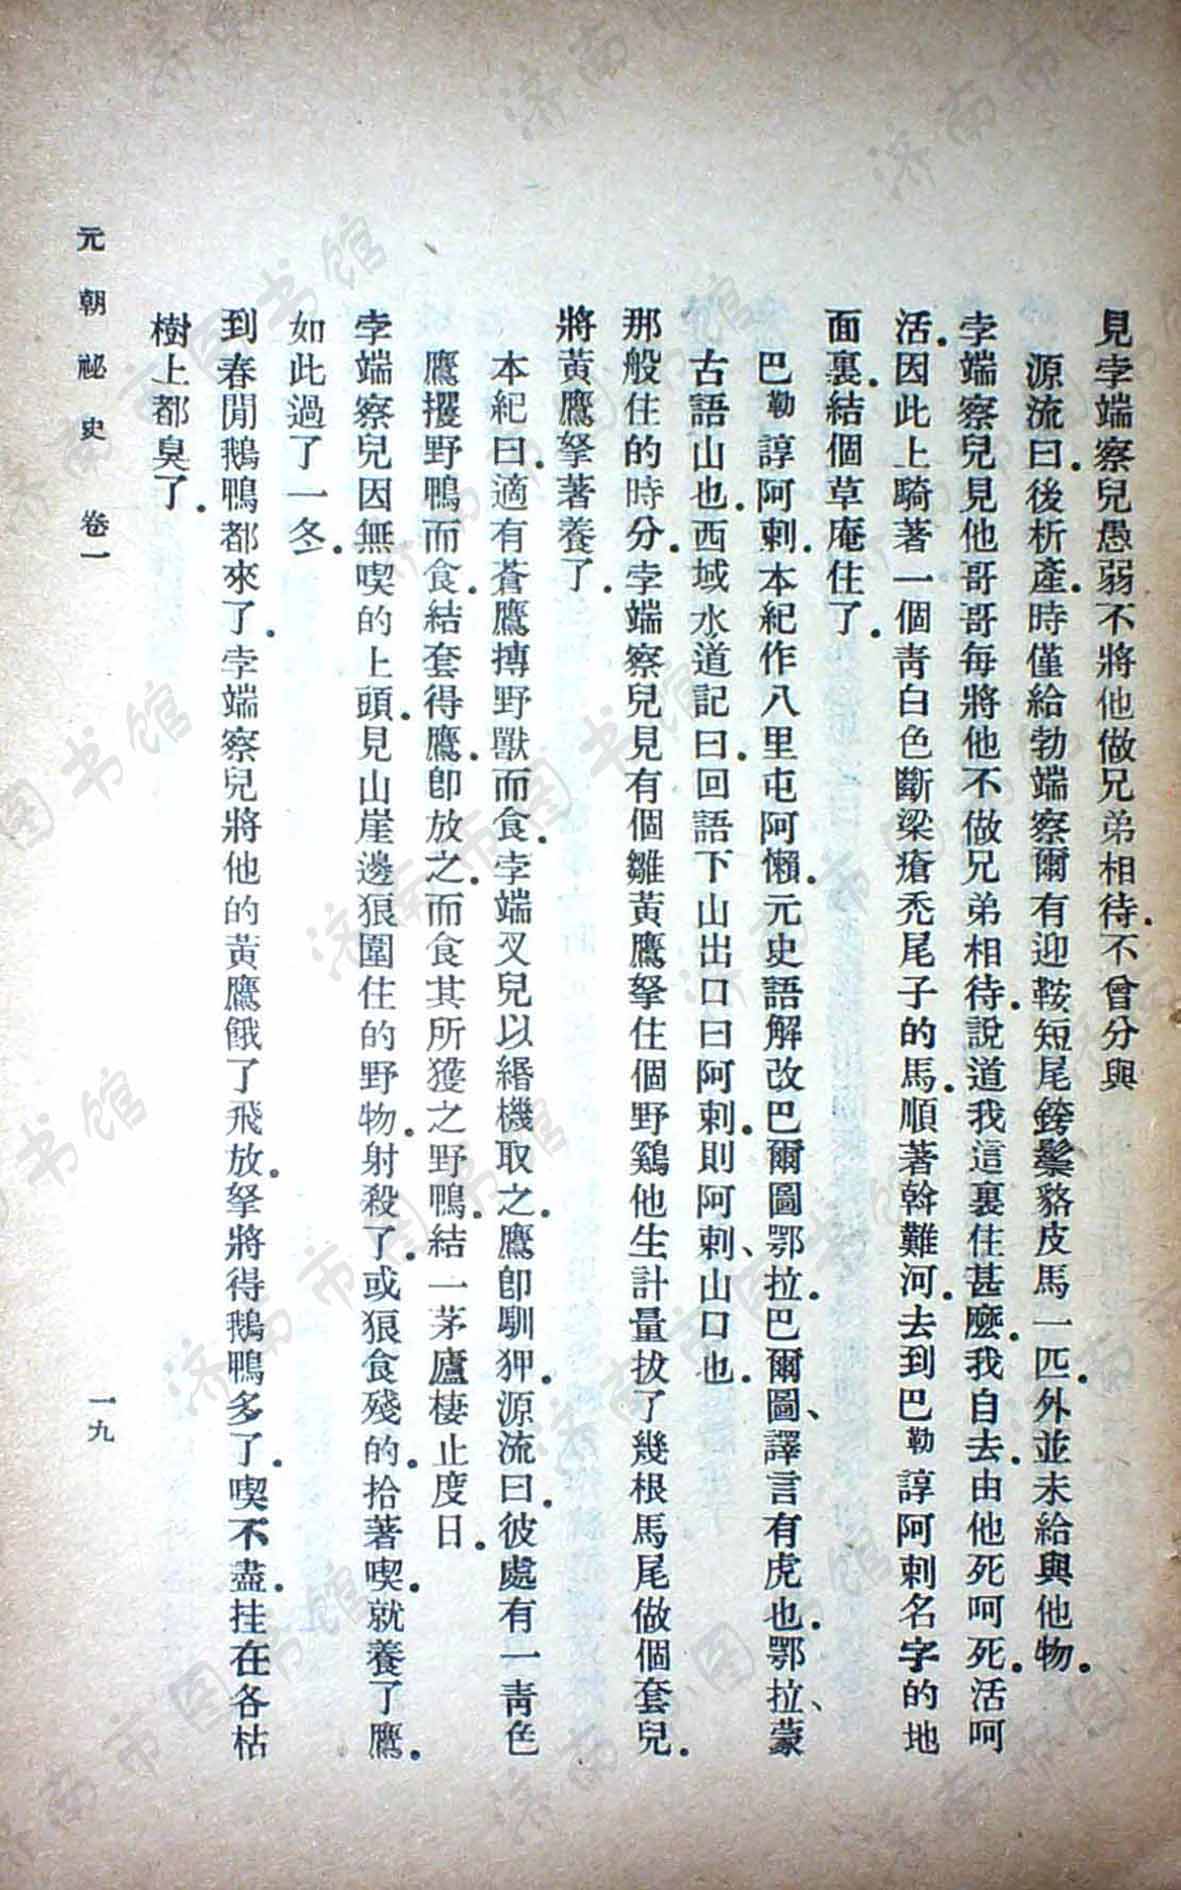 見孛端察兒愚弱不將他做兄弟相待.不曾分與
源流曰.後析產.時僅給勃端察爾有迎鞍短尾銙鬃貉皮馬一匹.外並未給與他物.
孛端察兒見他哥哥每將他不做兄弟相待.說道我這裏住甚麼.我自去.由他死呵死.活呵
活.因此上騎著一個靑白色斷梁瘡禿尾子的馬.順著斡難河.去到巴勒諄阿剌名字的地
面裏.結個草庵住了.
巴勒諄阿剌.本紀作八里屯阿懶.元史語解改巴爾圖鄂拉.巴爾圖、譯言有虎也.鄂拉、蒙
古語山也.西域水道記曰.回語下山出口曰阿剌.則阿剌、山口也.
那般住的時分.孛端察兒見有個雛黃鷹拏住個野鷄.他生計量拔了幾根馬尾做個套兒.
將黃鷹拏著養了.
本紀曰.適有蒼鷹摶野獸而食.孛端叉兒以緡機取之.鷹卽馴狎.源流曰.彼處有一靑色
鷹攫野鴨而食.結套得鷹.卽放之.而食其所獲之野鴨.結一茅廬棲止度日.
孛端察兒因無喫的上頭.見山崖邊狼圍住的野物.射殺了.或狼食殘的.拾著喫.就養了鷹.
如此過了一冬.
到春閒鵝鴨都來了.孛端察兒將他的黃鷹餓了飛放.拏將得鵝鴨多了.喫不盡.挂在各枯
樹上都臭了.
元朝祕史 卷一
一九
济南市图书馆